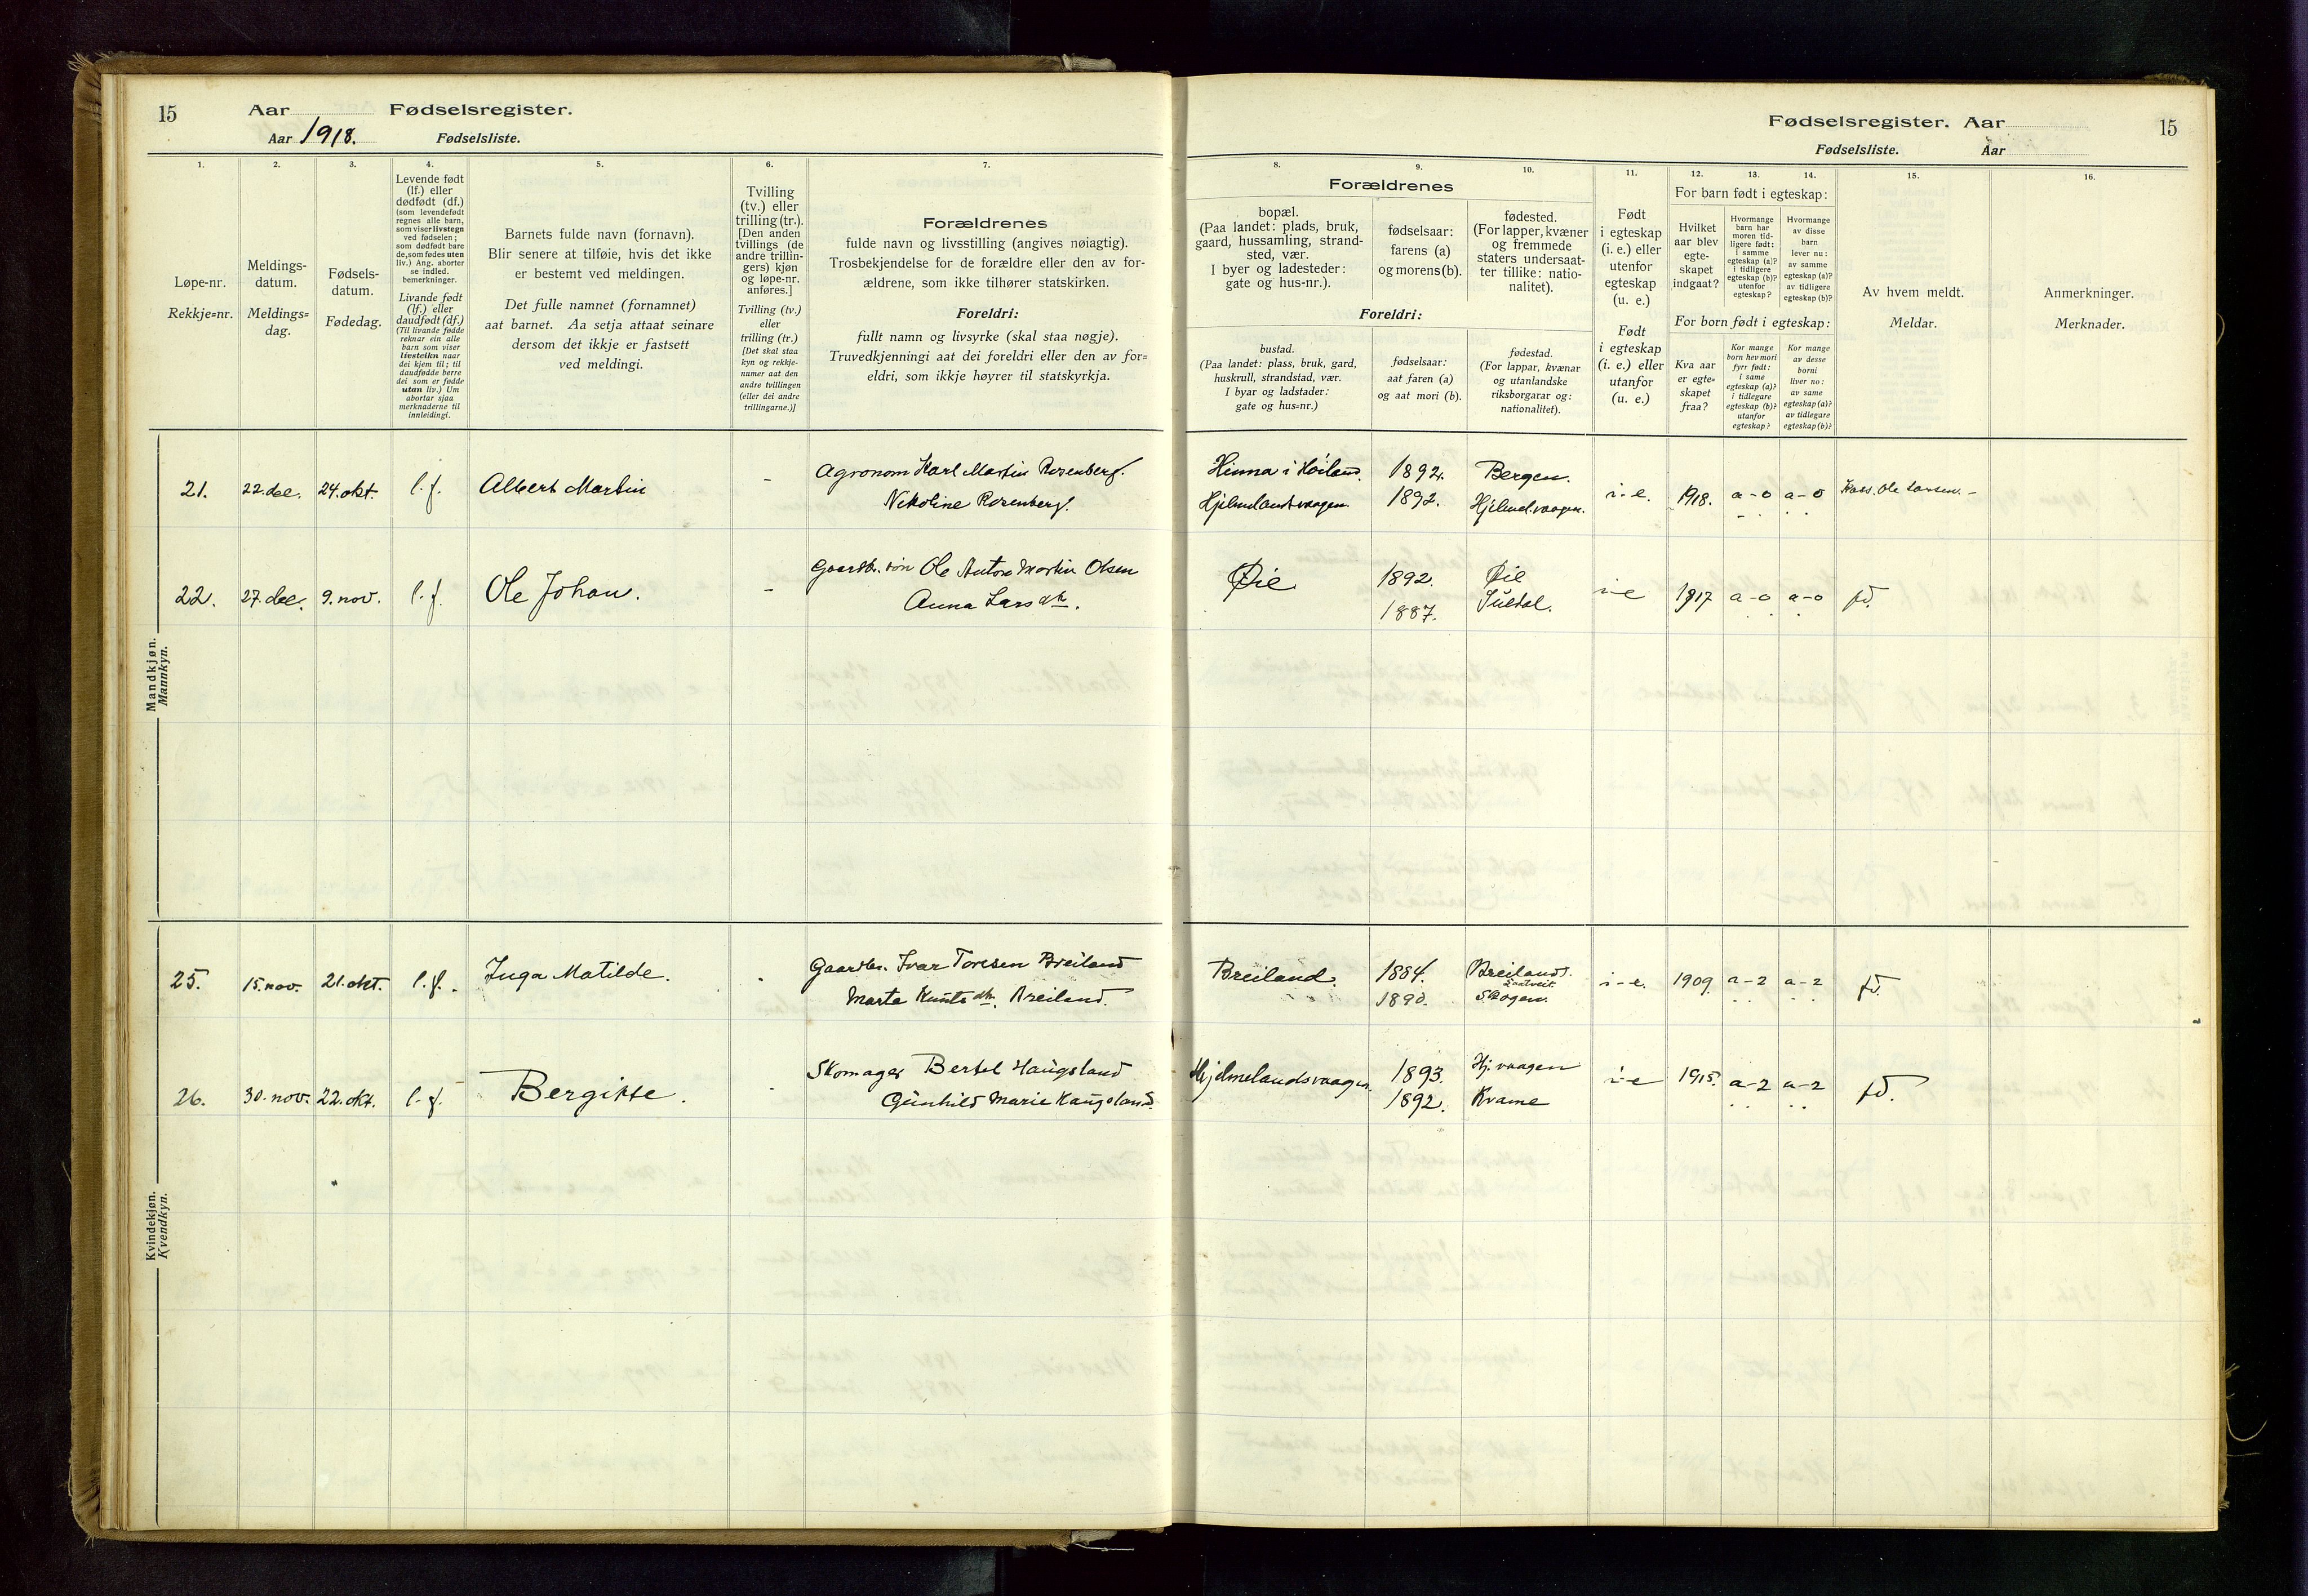 15
Aar Fødselsregister.
Aar 1918. Fødselsliste.
Fødselsregister. Aar
15
Fødselsliste. Aar
1.
Løpe-nr.
Rekkje=nr.
2.
Meldings-
datum.
Meldings=
dag.
3.
Fødsels-
datum.
Fødedag.
4.
Levende født
(lf.) eller
dødfødt (df.)
(som levendefødt
regnes alle barn,
som viser livstegn
ved fødselen;
som dødfødt bare
de, som fødes uten
liv.) Ang. aborter
se indled.
bemerkninger.
Livande født
(lf.) eller
daudfødt (df.)
(Til livande fødde
reknar ein alle
barn som viser
livsteikn naar
dei kjem til; til
daudfødde berre
dei som er fødde
utan liv.) Um
abortar sjaa
merknaderne til
innleidingi.
5.
Barnets fulde navn (fornavn).
Blir senere at tilføie, hvis det ikke
er bestemt ved meldingen.
Det fulle namnet (fornamnet)
aat barnet. Aa setja attaat seinare
dersom det ikkje er fastsett
ved meldingi.
6.
Tvilling
(tv.) eller
trilling (tr.).
[Den anden
tvillings (de
andre trillin-
gers) kjøn
og løpe-nr.
anføres.]
Tvilling (tv.)
eller
trilling (tr.)
[Det skal staa
kyn og rekkje-
numer aat den
andre tvillingen
(eller dei andre
trillingarne.)]
7.
Forældrenes
fulde navn og livsstilling (angives nøiagtig).
Trosbekjendelse for de forældre eller den av for-
ældrene, som ikke tilhører statskirken.
Foreldri:
fullt namn og livsyrke (skal staa nøgje).
Truvedkjenningi aat dei foreldri eller den av for=
eldri, som ikkje høyrer til statskyrkja.
Forældrenes
8.
bopæl.
(Paa landet: plads, bruk,
gaard, hussamling, strand-
sted, vær.
I byer og ladesteder:
gate og hus-nr.).
9.
fødselsaar:
farens (a)
og morens (b).
10.
fødested.
(For lapper, kvæner
og fremmede
staters undersaat-
ter tillike: natio-
nalitet).
Foreldri:
bustad.
(Paa landet: plass, bruk, gard,
huskrull, strandstad, vær.
I byar og ladstader:
gate og hus=nr.)
fødselsaar:
aat faren (a)
og aat mori (b).
fødestad.
(For lappar, kvænar
og utanlandske
riksborgarar og:
nationalitet).
11.
Født
i egteskap
(i. e.) eller
utenfor
egteskap
(u. e.)
Født
i egteskap
(i. e.) eller
utanfor
(u. e.)
For barn født i egteskap:
12.
Hvilket
aar blev
egte-
skapet
indgaat?
13.
Hvormange
barn har
moren tid-
ligere født:
i samme
egteskap (a)?
i tidligere
egteskap (b)?
utenfor
egteskap?
14.
Hvormange
av disse
barn
lever nu:
av samme
egteskap (a)?
av tidligere
egteskap (b)?
For born født i egteskap:
Kva aar
er egte=
skapet
fraa?
Kor mange
born hev mori
fyrr født:
i same
egteskap (a)?
i tidlegare
egteskap (b)?
utanfor
egteskap?
Kor mange
av desse
borni
liver no:
av same
egteskap (a)?
av tidlegare
egteskap (b)?
15.
Av hvem meldt.
Meldar.
16.
Anmerkninger.
Merknader.
Mandkjøn.
Mannkyn.
21. 22. dec. 24. okt. l. f. Albert Martin - Agronom Karl Martin Rosenberg. Hinna i Høiland. 1892. Bergen. i-e. 1918. a-0 a-0 Ole Larsen. -
Nikoline Rosenberg. Hjelmelandsvaagen. 1892. Hjelmel.vaagen.
22. 27. dec. 9. nov. l. f. Ole Johan. - Gaardbr. søn Ole Anton Martin Olsen Øie 1892. Øie i-e 1917 a-0 a-0 fd.
Anna Larsdtr. 1887. Suldal.
Kvindekjøn.
Kvendkyn.
25. 15. nov. 21. okt. l. f. Inga Matilde. - Gaardbr. Ivar Toresen Breiland Breiland. 1884. Breiland. i-e. 1909. a-2 a-2 fd.
Marta Knutsdtr. Breiland. 1890. Skogen.
26. 30. nov. 22. okt. l. f. Bergitte. - Skomager Bertel Haugsland Hjelmelandsvaagen. 1893. Hj.vaagen i-e 1915. a-2 a-2 fd.
Gunhild Marie Haugsland. 1892. Kvame